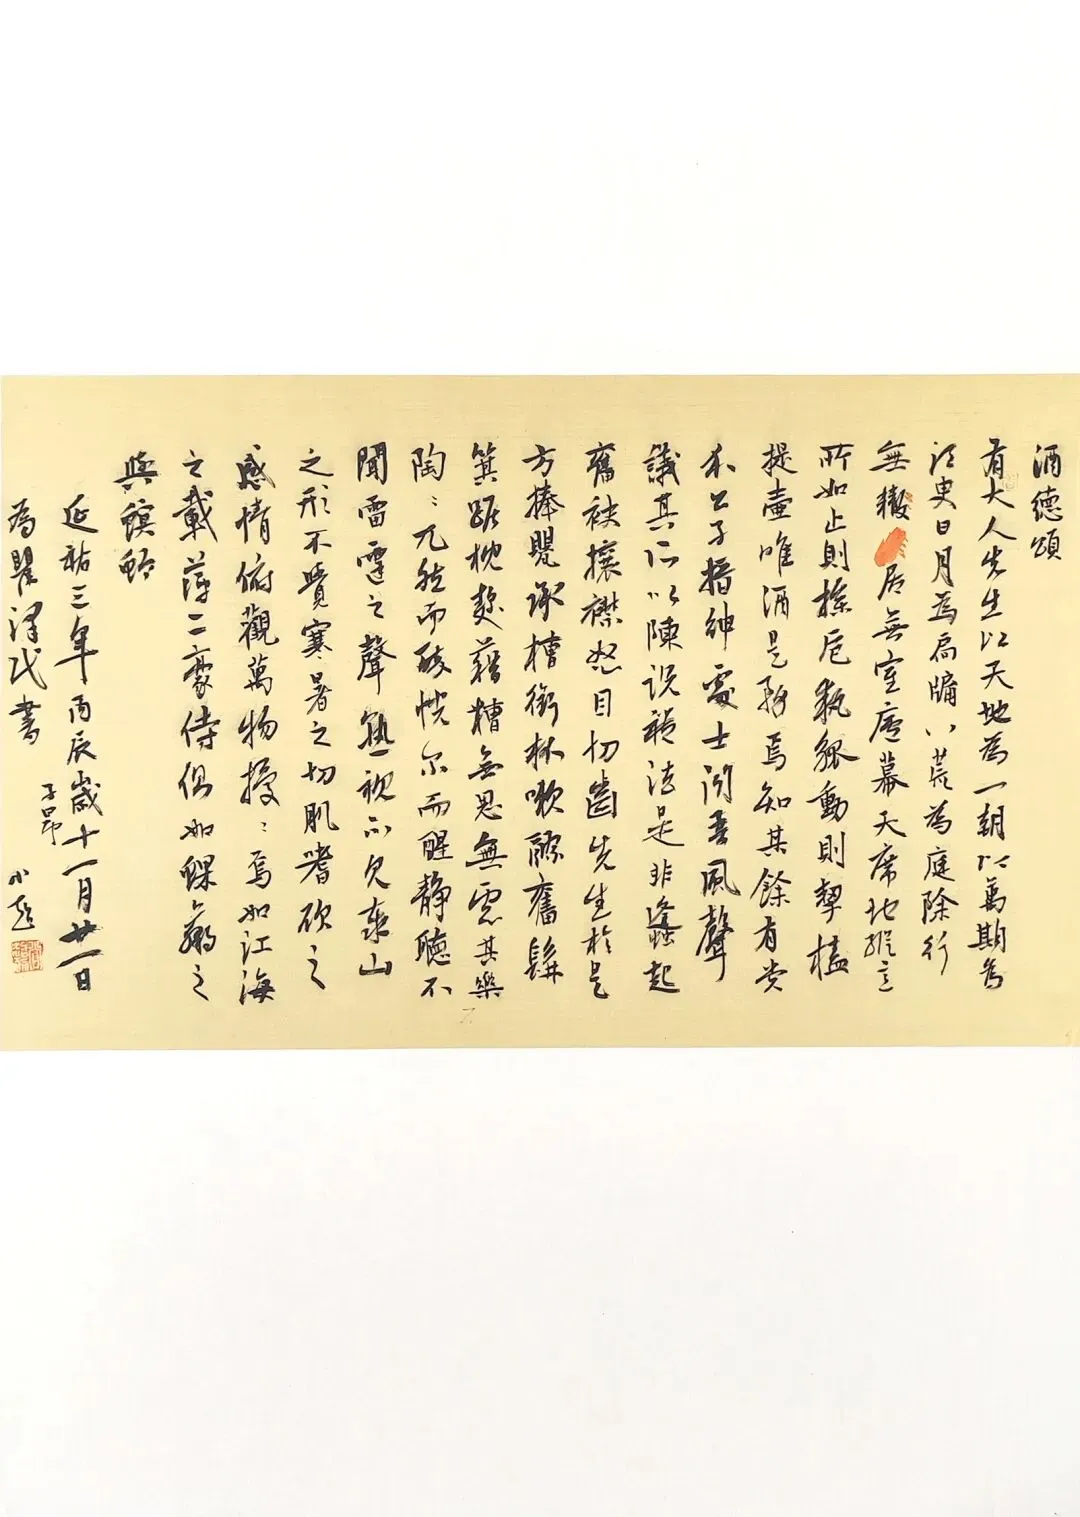 酒德頌
有大人先生以天地為一朝以萬期為
須臾日月為扃牖八荒為庭除行
無轍居無室廬幕天席地縱意
所如止則操卮執觚動則挈榼
提壺唯酒是務焉知其餘有貴
介公子搢紳處士聞吾風聲
議其所以陳說禮法是非蠭起
奮袂攘襟怒目切齒先生於是
方捧甖承槽銜杯漱醪奮髯
箕踞枕麴藉糟無思無慮其樂
陶〻兀然而醉恍尔而醒静聽不
聞雷霆之聲熟視不見泰山
之形不覺寒暑之切肌嗜欲之
感情俯觀萬物擾〻焉如江海
之載萍二豪侍側如蜾蠃之
與螟蛉
延祐三年丙辰歲十一月廿一日
為瞿澤民書
子昂